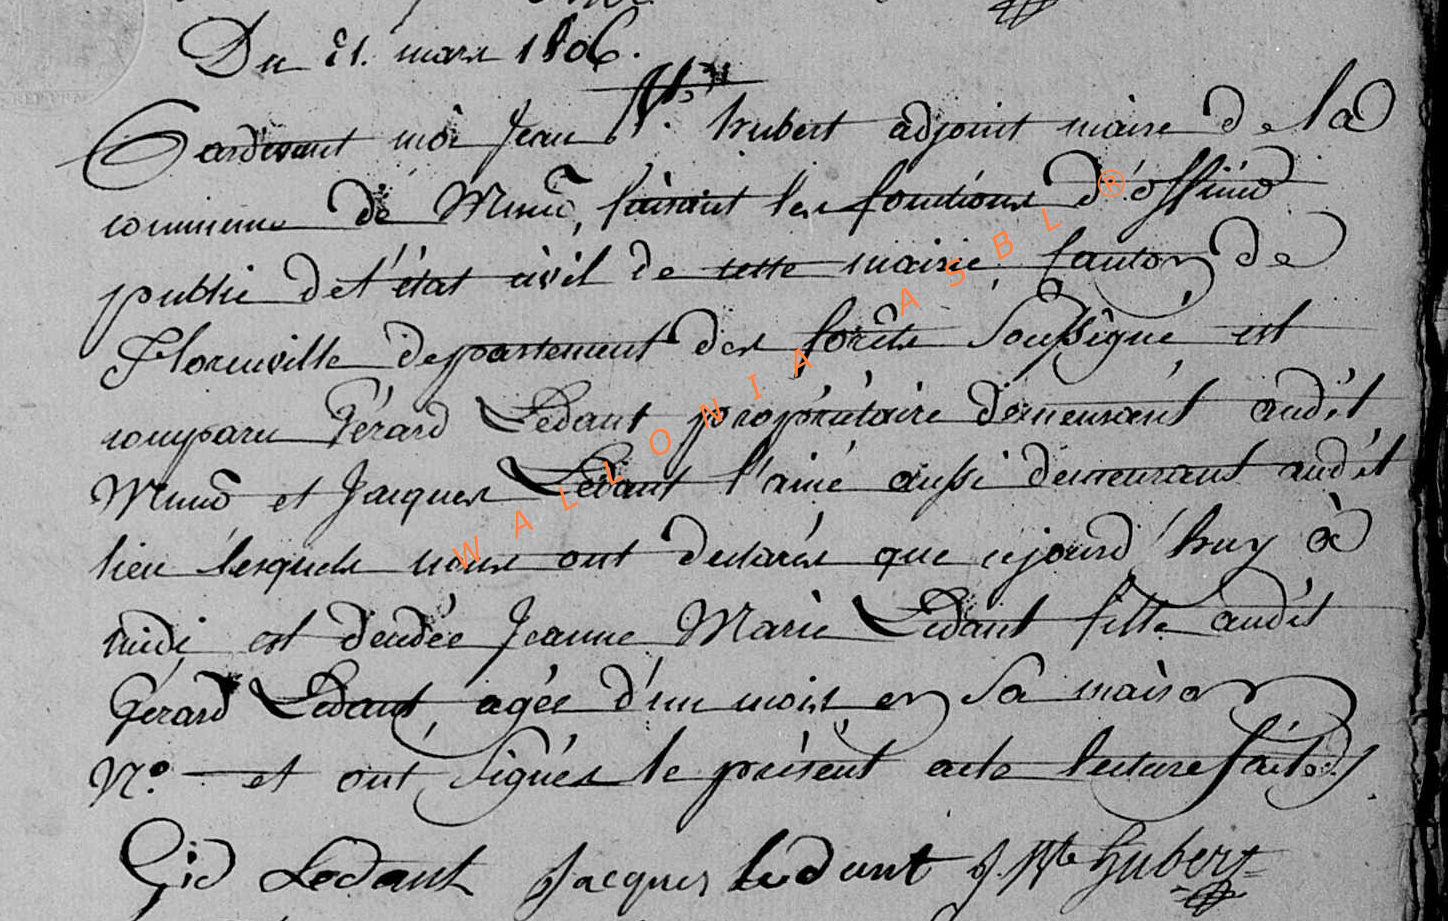 Du 21. mars 1806.
Pardevant moi Jean Bte. hubert adjoint maire de la
commune de Muno, faisant les fonctions d'officié
public de l'état civil de cette mairie, Canton de
Florenville departement des forêts Soussigné est
comparu Gérard Ledant propriétaire demeurant audit
Muno et Jacques Ledant l'ainé aussi demeurant audit
lieu lesquels nous ont declarés que cejourd'huy à
midi est dcudée Jeanne Marie Ledant fille audit
Gérard Ledant, agée d'un mois en Sa maison
N.° et ont signés le présent acte lecture faite
Gid Ledant Jacques Ledant J. Bte Hubert
WALLONIA ASBL ®